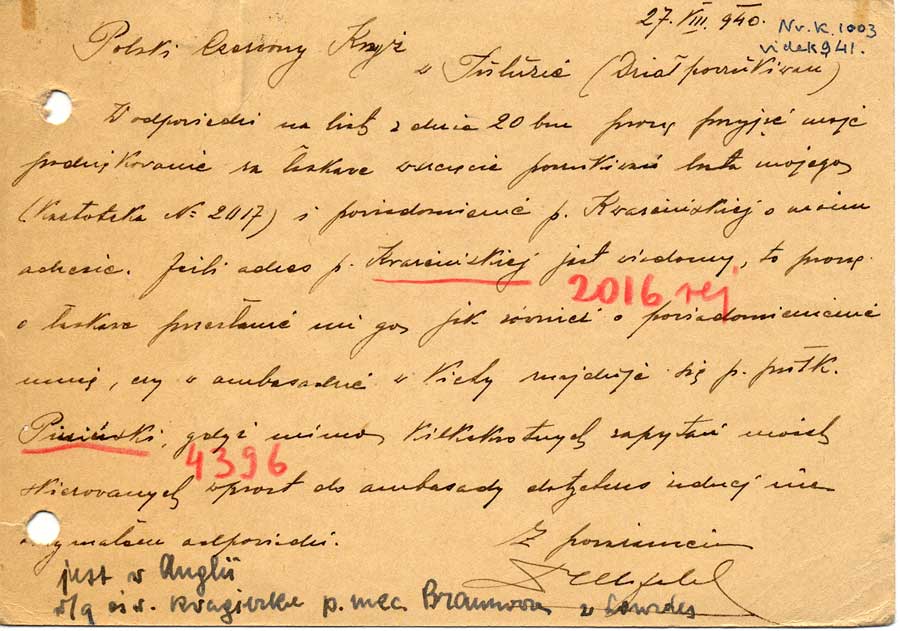 27. VIII. 940.
Nr. K. 1003
videk 941.
Polski Czerwony Krzyż
w Tuluzie (Dział poszukiwań)
W odpowiedzi na list z dnia 20 bm proszę przyjąć moje
podziękowanie za łaskawe wszczęcie poszukiwań brata mojego
(Kartoteka № 2017) i powiadomienie p. Kwaścińskiej o moim
adresie. Jeśli adres p. Kwaścińskiej jest wiadomy, to proszę
2016 rej
o łaskawe przesłanie mi go, jak również o powiadomienie
mnie, czy w ambasadzie w Vichy znajduje się p. pułk.
, gdyż mimo kilkakrotnych zapytań moich
4396
skierowanych wprost do ambasady dotychczas żadnej nie
otrzymałem odpowiedzi.
Z poważaniem
jest w Anglii
w/g ośw. p. mec w Lourdes